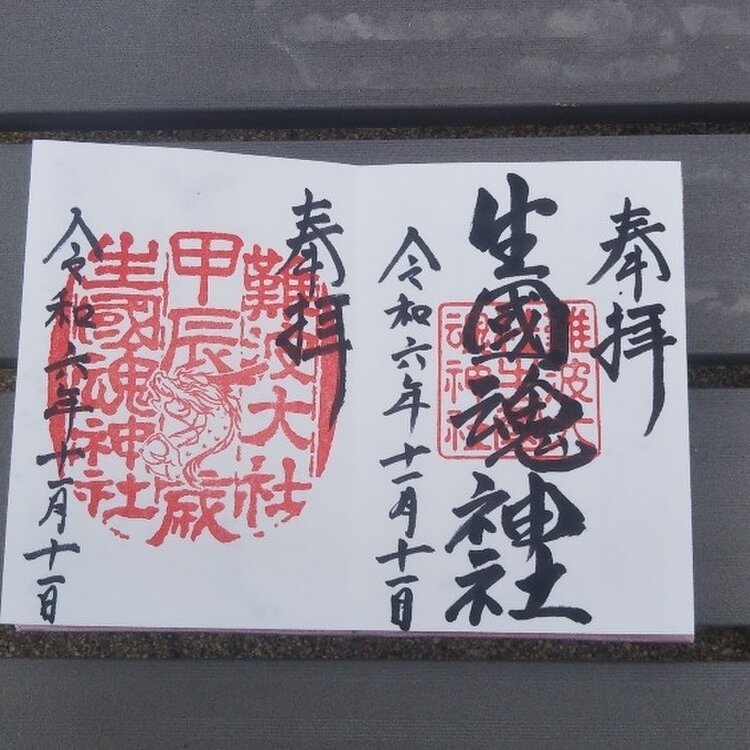 奉拝
生國魂神社
難波大
魂神社
令和六年十一月十一日
奉拝
難波大社
甲辰歳
生國魂神社
令和六年十一月十一日